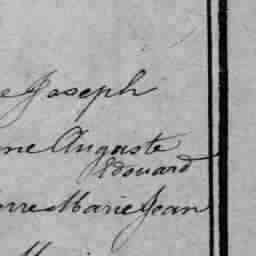 e Joseph
ne Auguste
Edouard
rre Marie Jean